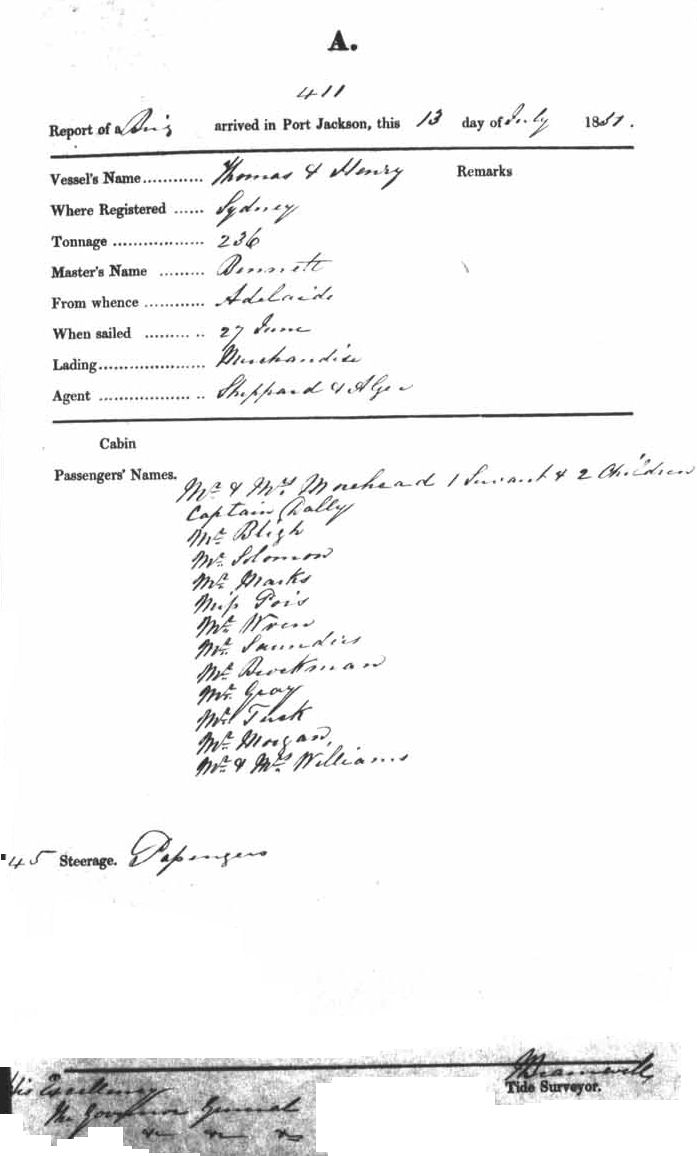 A.
411
Report of a Brig arrived in Port Jackson, this 13 day of July 1851.
Vessel's Name............ Thomas & Henry Remarks
Where Registered ...... Sydney
Tonnage .................. 236
Master's Name ......... Bennett
From whence ............ Adelaide
When sailed ......... .. 27 June
Lading..................... Merchandise
Agent .................. .. Sheppard & Alger
Cabin
Passengers' Names.
Mr & Mrs Morehead 1 Servant & 2 Children
Captain Dally
Mr Bligh
Mr Solomon
Mr Marks
Miss
Mr Wren
Mr Saunders
Mr Brockman
Mr Gray
Mr Tusk
Mr Morgan
Mr & Mrs Williams
45 Steerage. Passengers
Bramwell
Tide Surveyor.
His Excellency
The Governor General
&c &c &c